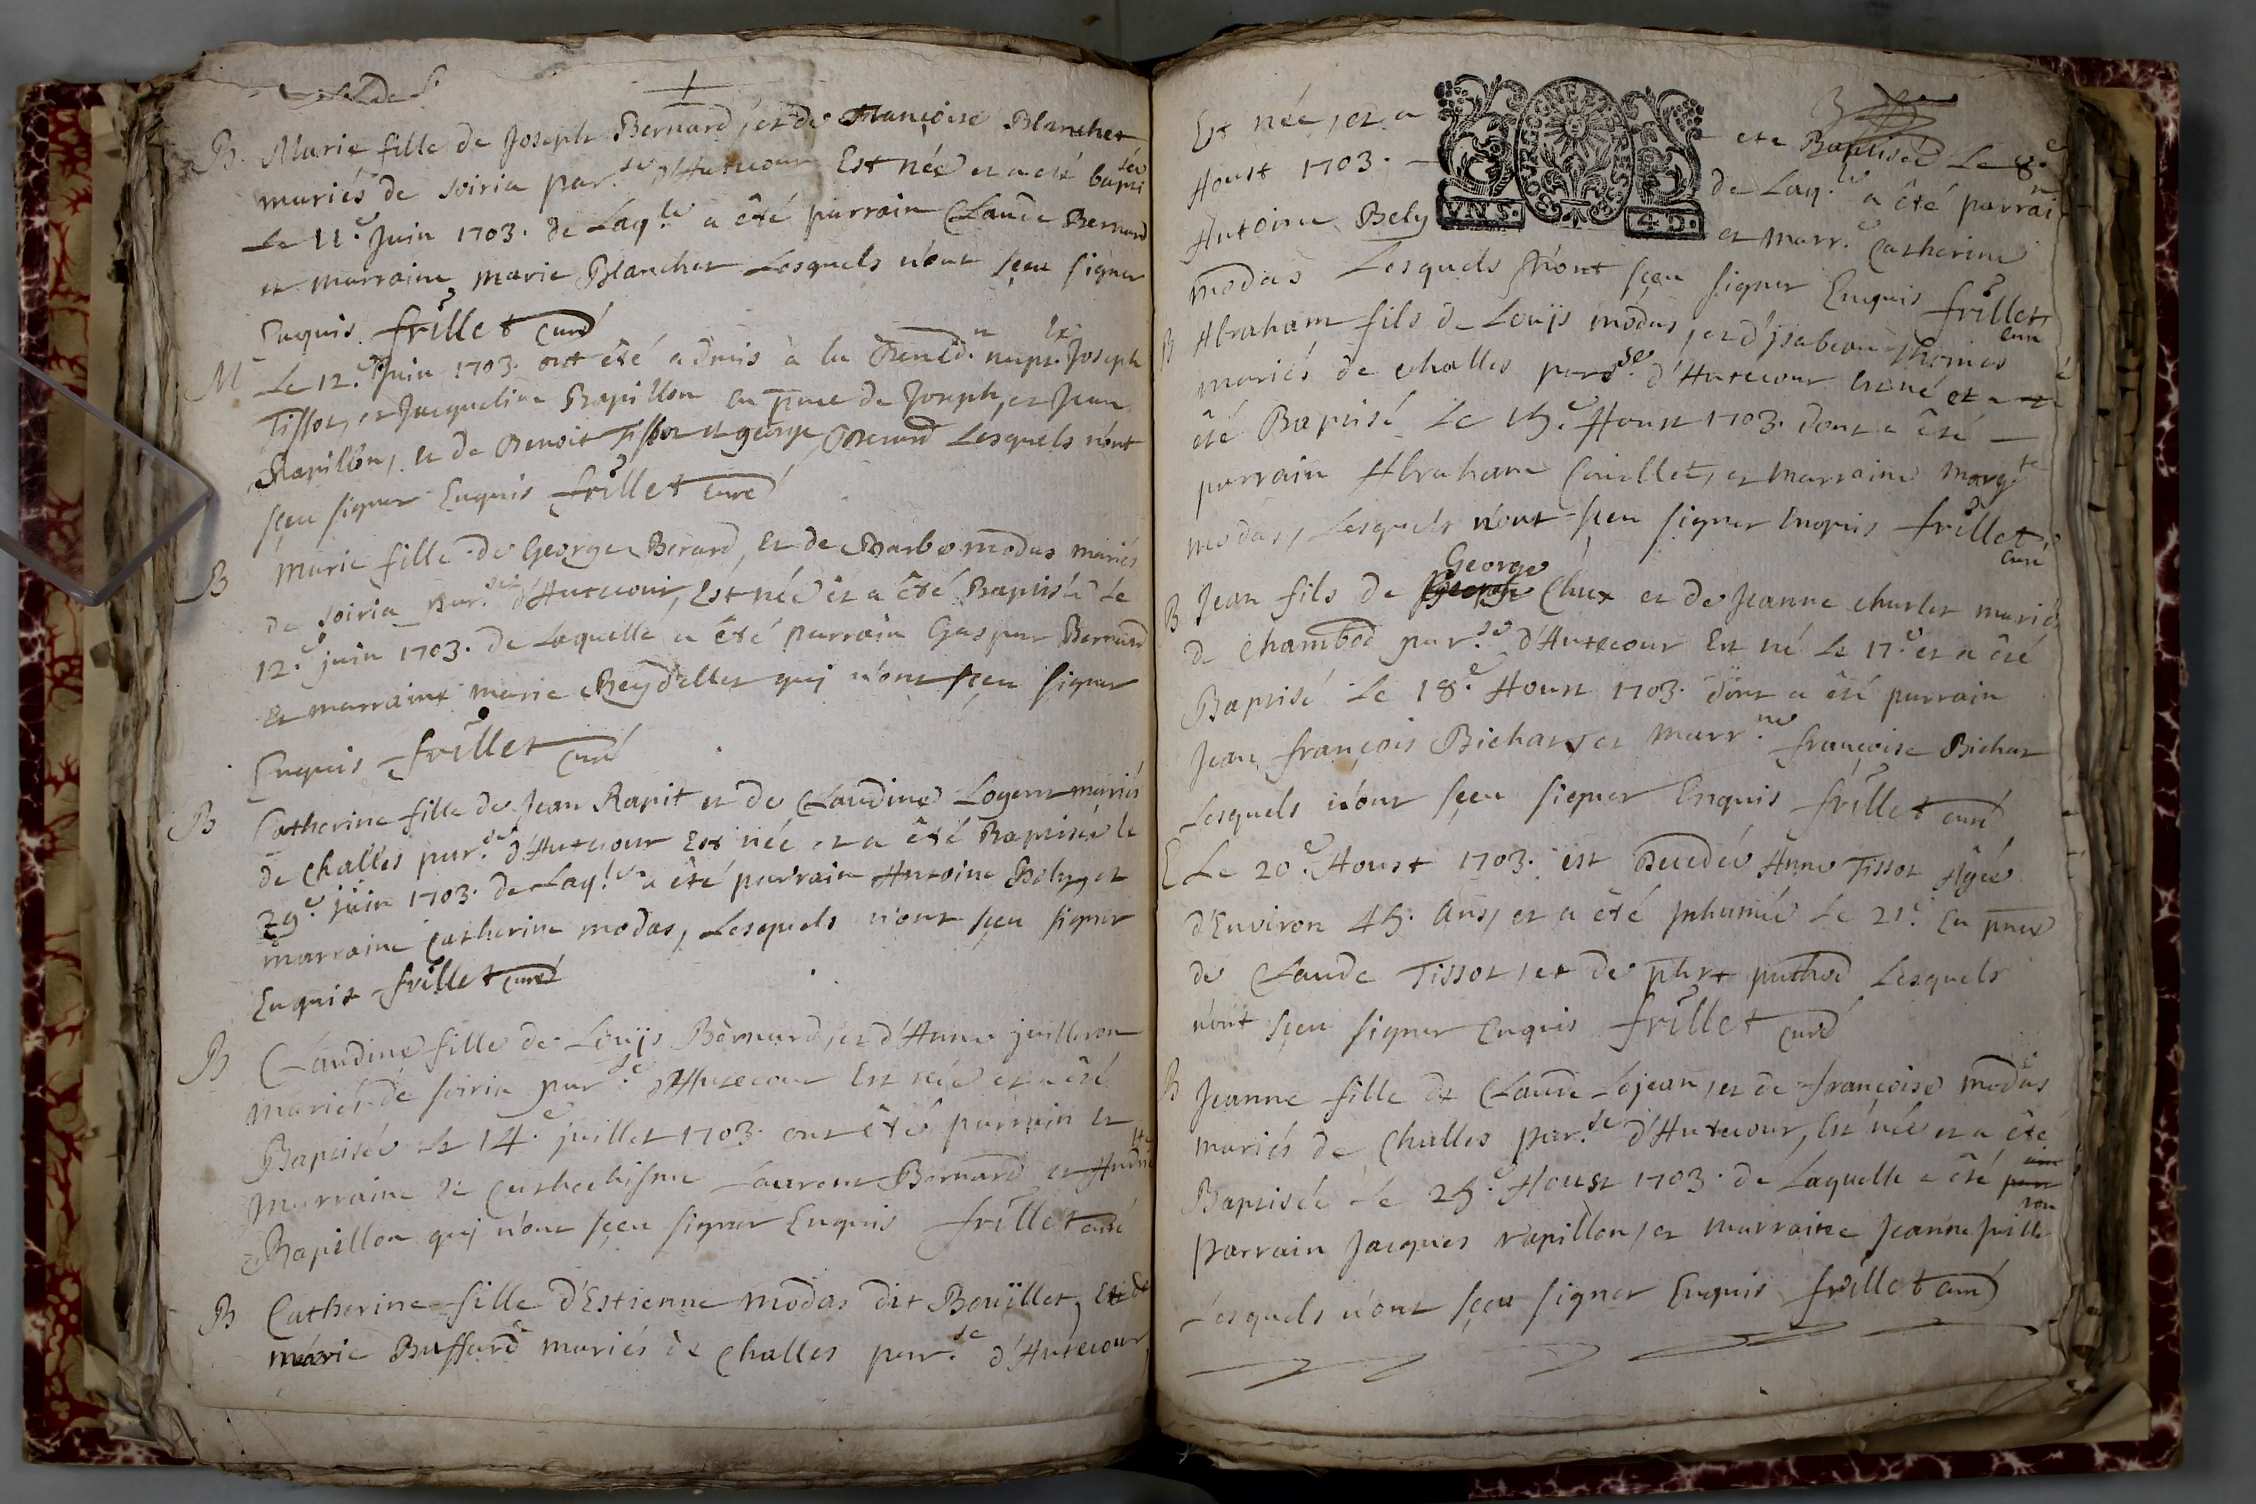 B. Marie fille de Joseph Bernard, et de françoise Blanchet
mariés de Soiria par.se d'Hautecour Est née et a eté baptisée
Le 11.e Juin 1703. de Laq.le a êté parrain Claude Bernard
et marraine marie Blanchet Lesquels n'ont sçeu signer
Enquis frillet curé
M Le 12.e Juin 1703. ont êté admis à la Bened.n nupt. Joseph
Tissot, et Jacqueline Rapillon en pnce de Joseph, et Jean
Rapillon, et de Benoit Tissot et george Berard Lesquels n'ont
sçeu signer Enquis frillet curé
B marie fille de George Berard, et de Barbe modas mariés
de Soiria par.se d'Hautecour, Est née et a êté Baptisée Le
12.e juin 1703. de Laquelle a êté parrain Gaspar Bernard
et marraine marie Reydellet quj n'ont sçeu signer
Enquis frillet curé
B Catherine fille de Jean Rapit et de Claudine Logerot mariés
de Challes par.se d'Hautecour Est née et a êté Baptisée le
29.e juin 1703. de Laq.le a êté parrain Antoine Bely, et
marraine Catherine modas, Lesquels n'ont sçeu signer
Enquis frillet curé
B Claudine fille de Louijs Bernard, et d'Anne juilleron
mariés de soiria par.se d'Hautecour Est née et a êté
Baptisée Le 14.e juillet 1703. ont êté parrain et
marraine de Cathechisme Laurent Bernard et
Rapillon quj n'ont sçeu signer Enquis frillet curé
B Catherine fille d'Estienne modas dit Boüillet, et de
marie Buffard mariés de Challes par.se d'Hautecour
3
Est née, et a eté Baptisée Le 8.e
Aoust 1703. - de Laq.le a êté parrain
Antoine Bely et marr.e Catherine
modas Lesquels n'ont sçeu signer Enquis frillet
curé
B Abraham fils de Louijs modas, et d'ysabeau Thomas
mariés de challes par.se d'Hautecour Est né et a
êté Baptisé Le 15.e Aoust 1703. dont a êté
parrain Abraham Cuillet, et marraine marg.te
modas, Lesquels n'ont sçeu signer Enquis frillet
curé
George
B Jean fils de Chux et de Jeanne charlet mariés
de Chambod par.se d'Hautecour Est né Le 17.e et a êté
Baptisé Le 18.e Aoust 1703. dont a êté parrain
Jean françois Bichat, et marr.ne françoise Bichat
Lesquels n'ont sçeu signer Enquis frillet curé
E Le 20.e Aoust 1703. est decedée Anne Tissot Agée
d'Environ 45. ans, et a êté jnhumée Le 21.e En pnce
de Claude Tissot, et de phrt puthod Lesquels
n'ont sçeu signer Enquis frillet curé
B Jeanne fille de Claude Lejean, et de françoise modas
mariés de Challes par.se d'Hautecour, Est née et a êté
Baptisée Le 25.e Aoust 1703. de Laquelle a êté
parrain Jacques rapillon, et marraine Jeanne juilleron
Lesquels n'ont sçeu signer Enquis frillet curé